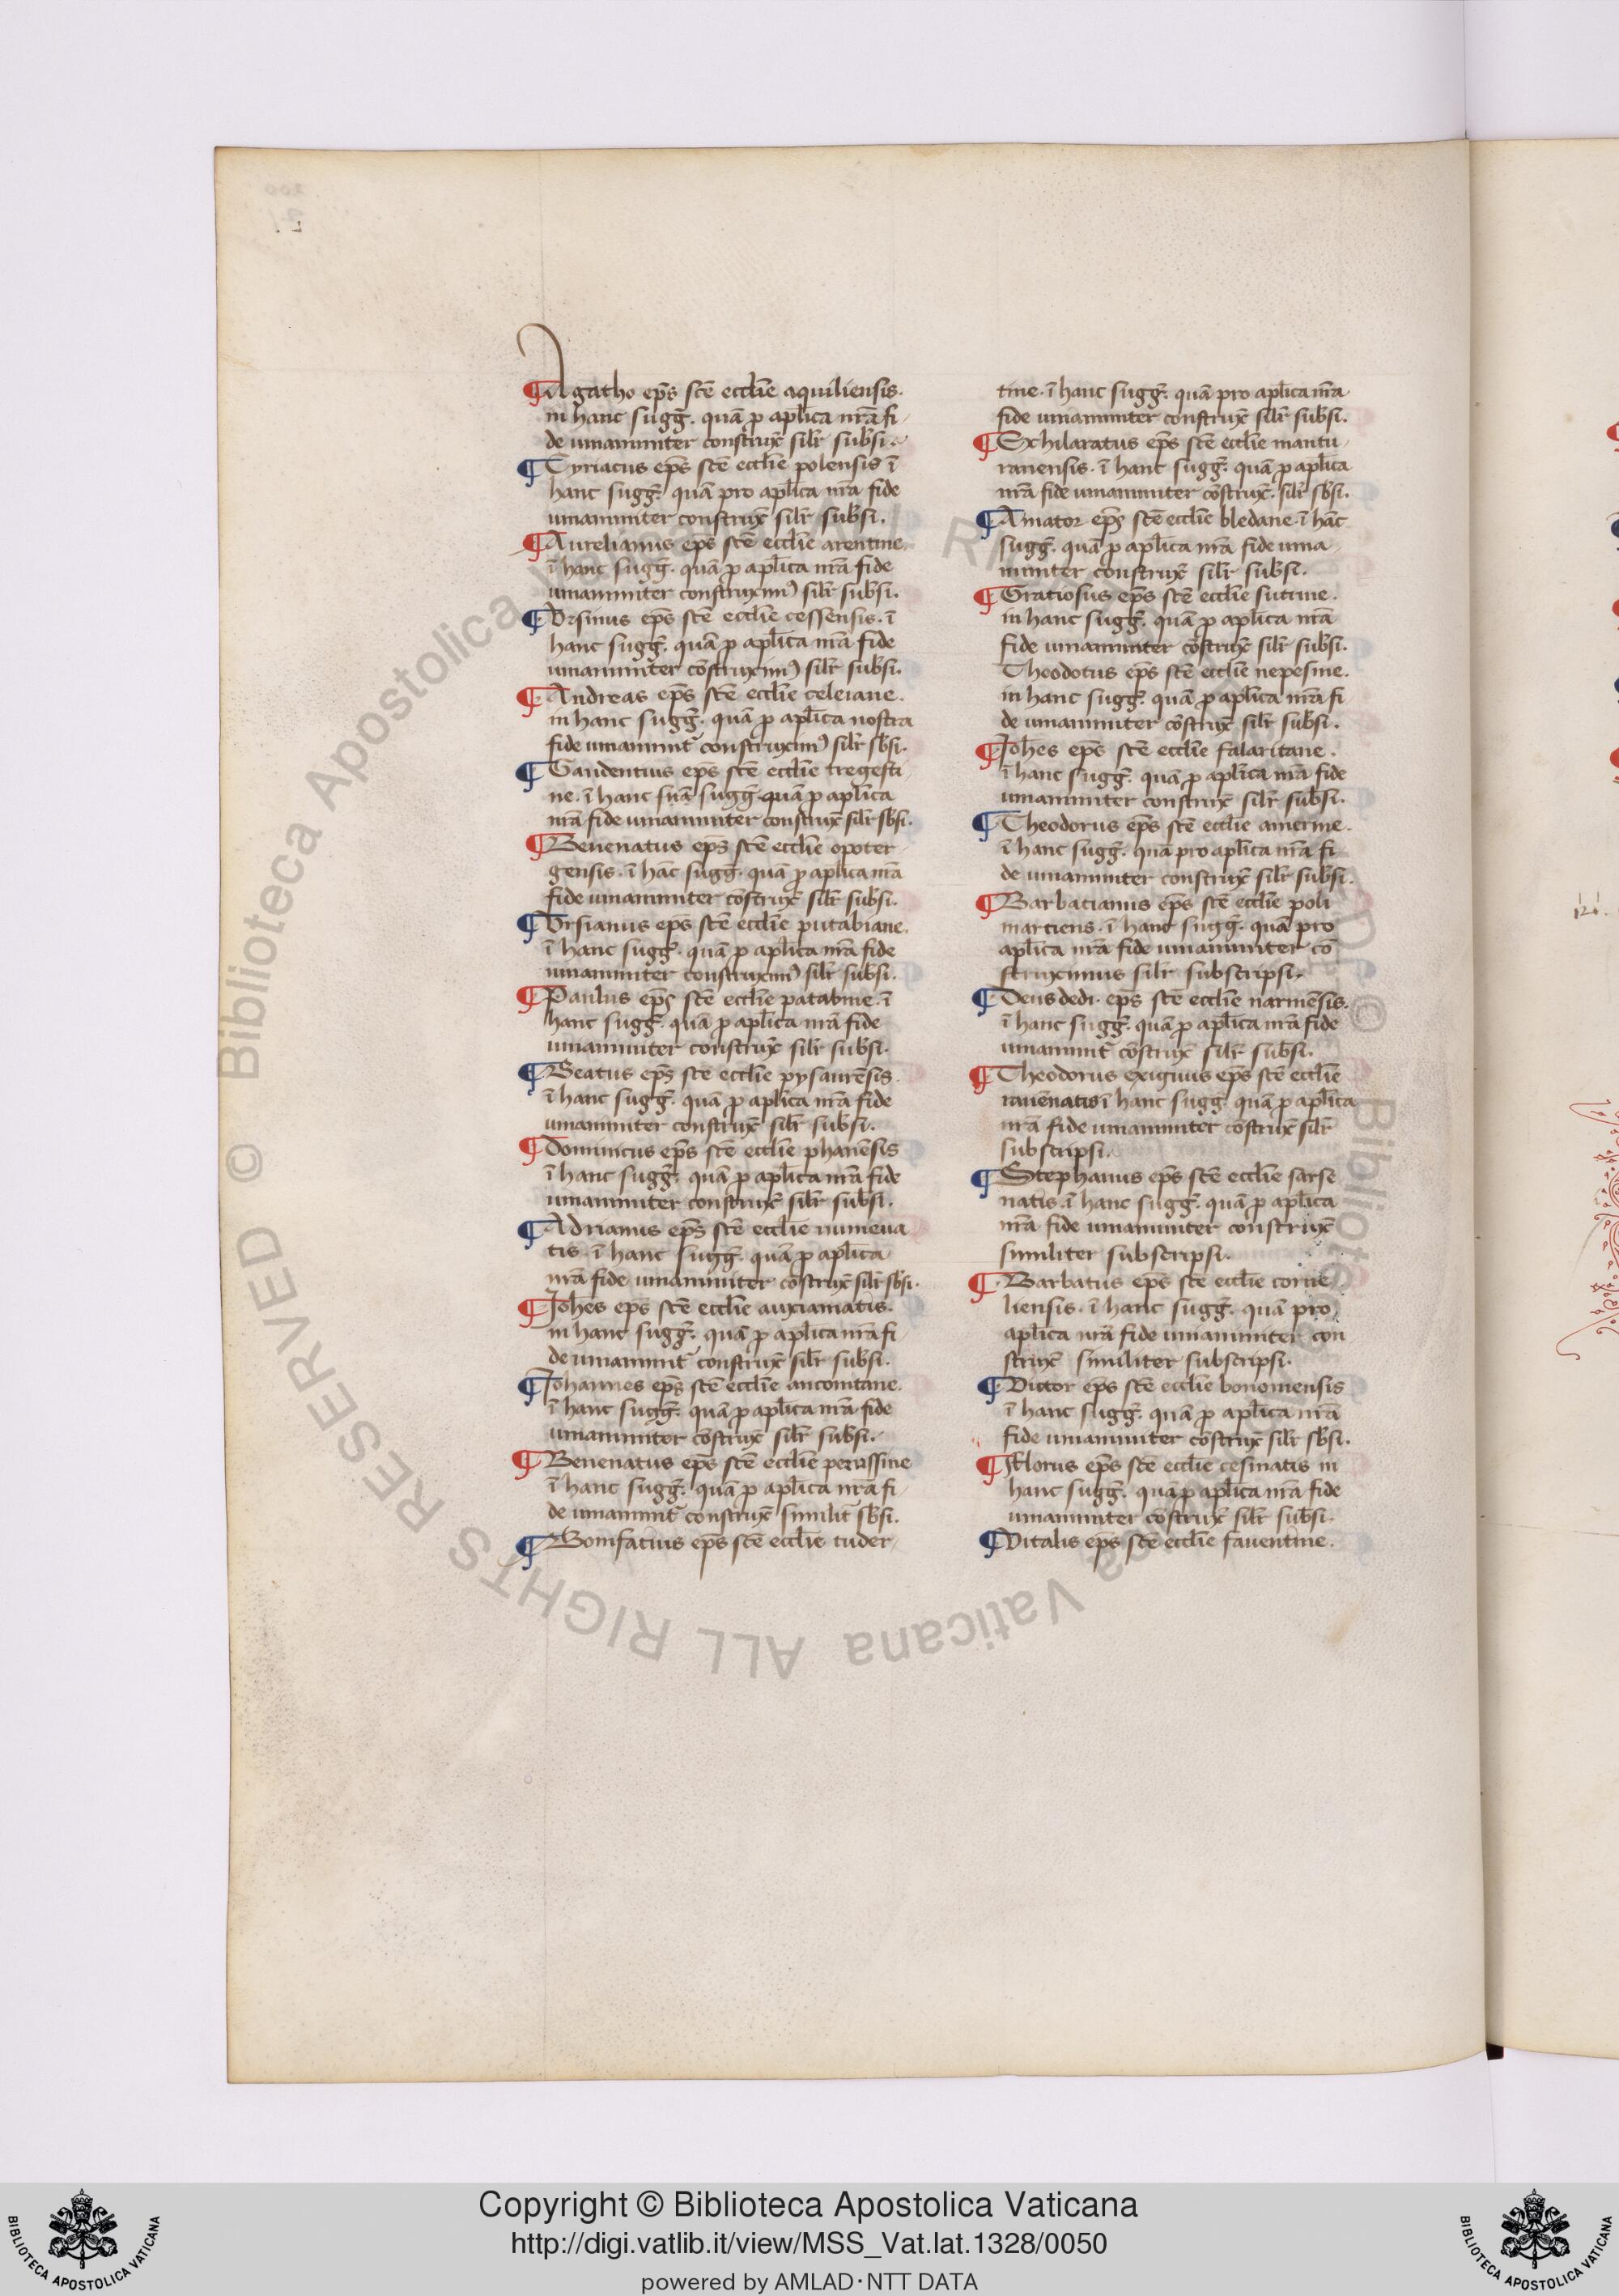 ¶ Agatho ep̄s scē eccl̄ie aquiliensis.
in hanc sugḡ. quā p̱ apl̄ica nr̄a fi
de unanimiter construx̄ silr̄ subs̄i.
¶ Cyriacus ep̄s scē eccl̄ie polensis ī
hanc sugḡ. quā pro apl̄ica nr̄a fide
unanimiter construx̄ silr̄ subs̄i.
¶ Aurelianus ep̄s scē eccl̄ie arentine.
ī hanc sugḡ. quā p̱ apl̄ica nr̄a fide
unanimiter construximꝰ silr̄ subs̄i.
¶ Vrsinus ep̄s scē eccl̄ie cessensis. ī
hanc sugḡ. quā p̱ apl̄ica nr̄a fide
unanimiter cōstruximꝰ silr̄ subs̄i.
¶ Andreas ep̄s scē eccl̄ie celeiane.
in hanc sugḡ. quā p̱ apl̄ica nostra
fide unanimit̄ construximꝰ silr̄ sb̄si.
¶ Gaudentius ep̄s scē eccl̄ie tregesti
ne. ī hanc suā sugḡ quā p̱ apl̄ica
nr̄a fide unanimiter construx̄ silr̄ sb̄si.
¶ Benenatus ep̄s scē eccl̄ie opoter
gensis. ī hāc sugḡ. quā p̱ apl̄ica nr̄a
fide unanimiter cōstrux̄ silr̄ subs̄i.
¶ Vrsianus ep̄s scē eccl̄ie putabiane.
ī hanc sugḡ. quā p̱ apl̄ica nr̄a fide
unanimiter construximꝰ silr̄ subs̄i.
¶ Paulus ep̄s scē eccl̄ie patabine. ī
hanc sugḡ. quā p̱ apl̄ica nr̄a fide
unanimiter construx̄ silr̄ subs̄i.
¶ Beatus ep̄s scē eccl̄ie pysaurēsis.
ī hanc sugḡ. quā p̱ apl̄ica nr̄a fide
unanimiter construx̄ silr̄ subs̄i.
¶ Dominicus ep̄s scē eccl̄ie phanēsis
ī hanc sugḡ. quā p̱ apl̄ica nr̄a fide
unanimiter construx̄ silr̄ subs̄i.
¶ Adrianus ep̄s scē eccl̄ie numeua
tis. ī hanc sugḡ. quā p̱ apl̄ica
nr̄a fide unanimiter cōstrux̄ silr̄ sb̄si.
¶ Joh̄es ep̄s scē eccl̄ie auxiamatis.
in hanc sugḡ. quā p̱ apl̄ica nr̄a fi
de unanimit̄ construx̄ silr̄ subs̄i.
¶ Johannes ep̄s scē eccl̄ie anconitane.
ī hanc sugḡ. quā p̱ apl̄ica nr̄a fide
unanimiter cōstrux̄ silr̄ subs̄i.
¶ Benenatus ep̄s scē eccl̄ie perussine
ī hanc sugḡ. quā p̱ apl̄ica nr̄a fi
de unanimit̄ construx̄ similit̄ sb̄si.
¶ Bonifatius ep̄s scē eccl̄ie tuder
tine. ī hanc sugḡ. quā pro apl̄ica nr̄a
fide unanimiter construx̄ silr̄ subs̄i.
¶ Exhilaratus ep̄s scē eccl̄ie mantu
ranensis. ī hanc sugḡ. quā p̱ apl̄ica
nr̄a fide unanimiter cōstrux̄. silr̄ sb̄si.
¶ Amator ep̄s scē eccl̄ie bledane. ī hāc
sugḡ. quā p̱ apl̄ica nr̄a fide una
nimiter construx̄ silr̄ subs̄i.
¶ Gratiosus ep̄s scē eccl̄ie sutrine.
in hanc sugḡ. quā p̱ apl̄ica nr̄a
fide unanimiter cōstrux̄ silr̄ subs̄i.
Theodotus ep̄s scē eccl̄ie nepesine.
in hanc sugḡ. quā p̱ apl̄ica nr̄a fi
de unanimiter cōstrux̄ silr̄ subs̄i.
¶ Joh̄es ep̄s scē eccl̄ie falaritane.
ī hanc sugḡ. quā p̱ apl̄ica nr̄a fide
unanimiter construx̄ silr̄ subs̄i.
¶ Theodorus ep̄s scē eccl̄ie amerine.
ī hanc sugḡ. quā pro apl̄ica nr̄a fi
de unanimiter construx̄ silr̄ subs̄i.
¶ Barbatianus ep̄s scē eccl̄ie poli
martiens. ī hanc sugḡ. quā pro
apl̄ica nr̄a fide unanimiter cō
struximus silr̄ subscripsi.
¶ Deus dedi. ep̄s scē eccl̄ie narniēsis.
ī hanc sugḡ. quā p̱ apl̄ica nr̄a fide
unanimit̄ cōstrux̄ silr̄ subs̄i.
¶ Theodorus exiguus ep̄s scē eccl̄ie
rauēnatis ī hanc sugḡ. quā p̱ apl̄ica
nr̄a fide unanimiter cōstrux̄ silr̄
subscripsi.
¶ Stephanus ep̄s scē eccl̄ie sarse
natis. ī hanc sugḡ. quā p̱ apl̄ica
nr̄a fide unanimiter construx̄
similiter subscripsi.
¶ Barbatus ep̄s scē eccl̄ie corne
liensis. ī hanc sugḡ. quā pro
apl̄ica nr̄a fide unanimiter con
strux̄ similiter subscripsi.
¶ Victor ep̄s scē eccl̄ie bononiensis
ī hanc sugḡ. quā p̱ apl̄ica nr̄a
fide unanimiter cōstrux̄ silr̄ sb̄si.
¶ Florus ep̄s scē eccl̄ie cesinatis in
hanc sugḡ. quā p̱ apl̄ica nr̄a fide
unanimiter cōstrux̄ silr̄ subs̄i.
¶ Vitalis ep̄s scē eccl̄ie fauentine.
Copyright © Biblioteca Apostolica Vaticana
http://digi.vatlib.it/view/MSS_Vat.lat.1328/0050
powered by AMLAD·NTT DATA
BIBLIOTECA APOSTOLICA VATICANA
BIBLIOTECA APOSTOLICA VATICANA
© Biblioteca Apostolica Vaticana ALL RIGHTS RESERVED